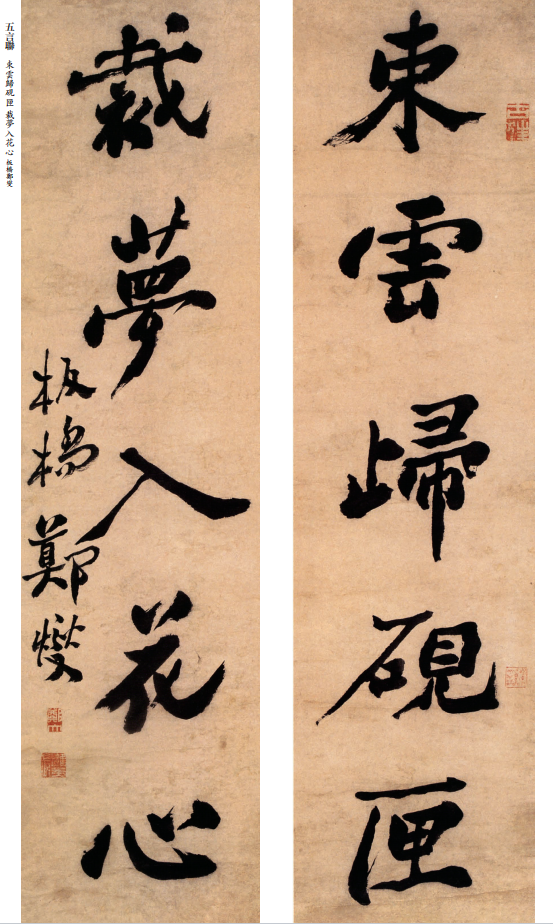 束雲歸硯匣
裁夢入花心
板橋鄭燮
五言聯 束雲歸硯匣 裁夢入花心 板橋鄭燮